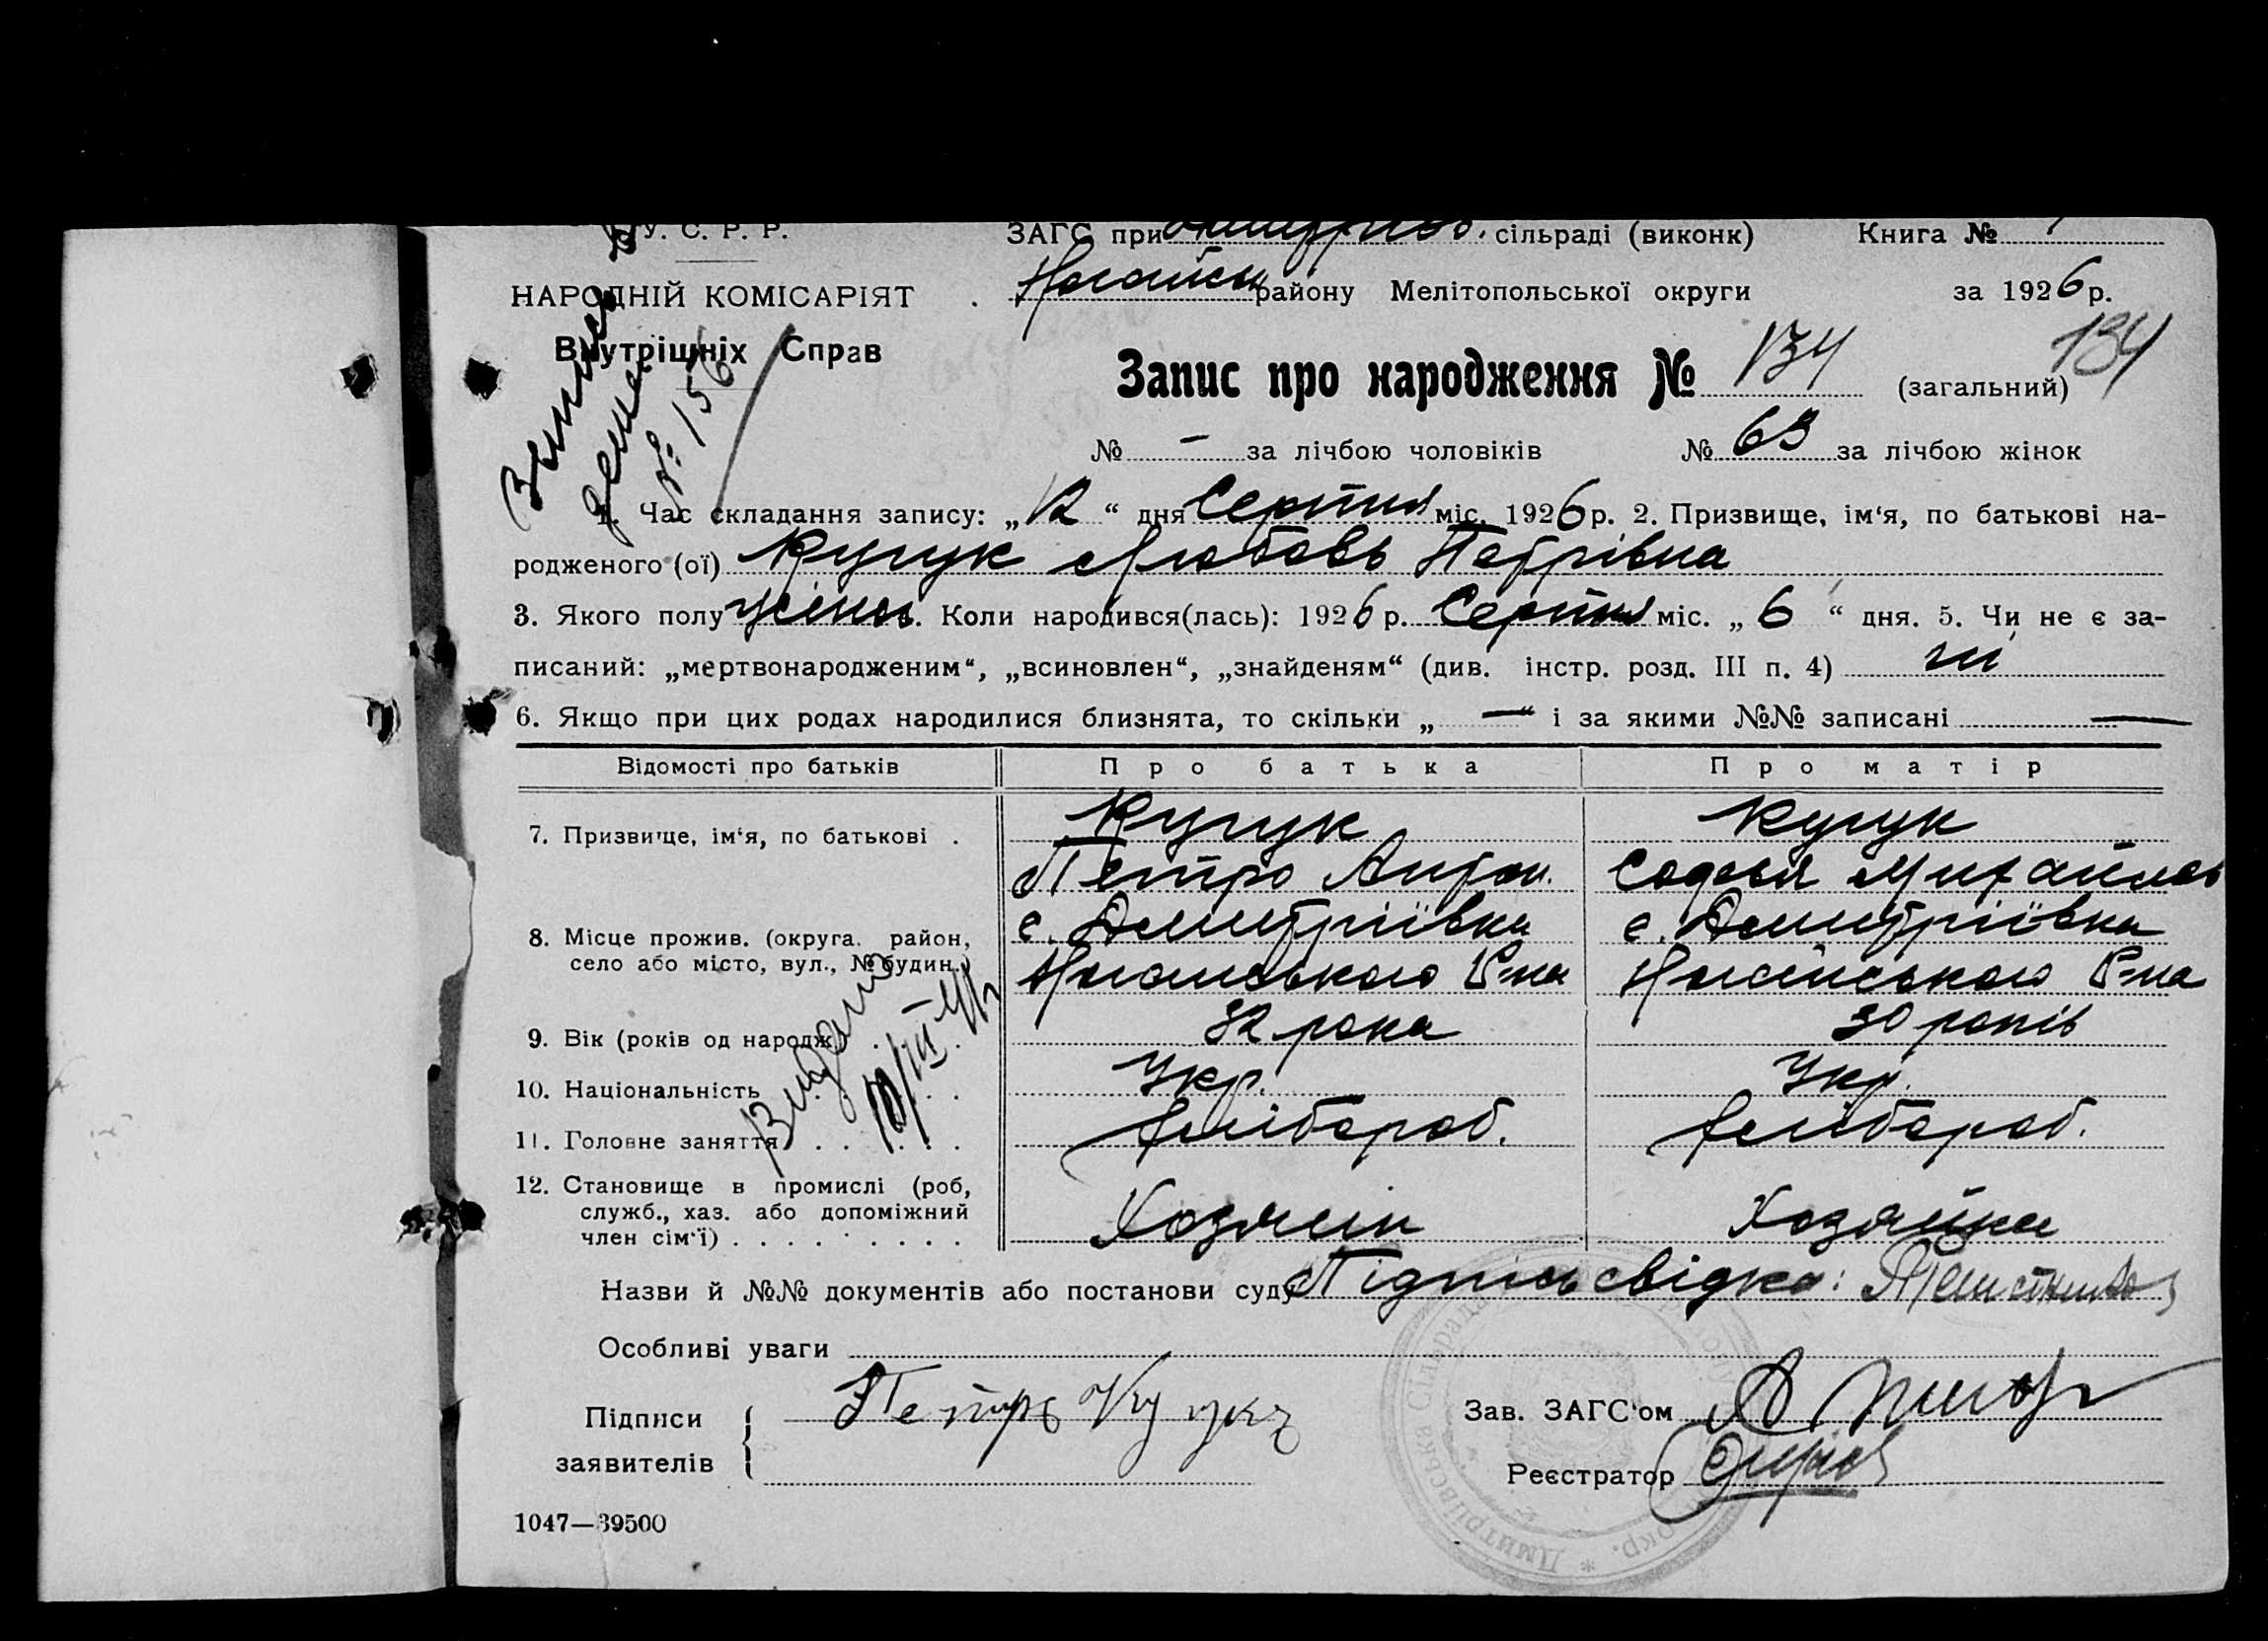 У. С. Р. Р. ЗАГС при сільраді (виконк) Книга №
НАРОДНІЙ КОМІСАРІЯТ району Мелітопольської округи за 1926 р.
Внутрішніх Справ
№ 156
Запис про народження № 134 (загальний) 134
№ — за лічбою чоловіків № 63 за лічбою жінок
1. Час складання запису: „12“ дня Серпня міс. 1926 р. 2. Призвище, ім‘я, по батькові на-
родженого (ої) Кучук Любовь Петрівна
3. Якого полу жіноч. Коли народився(лась): 1926 р. Серпня міс. „6“ дня. 5. Чи не є за-
писаний: „мертвонародженим“, „всиновлен“, „знайденям“ (див. інстр. розд. III п. 4) ні
6. Якщо при цих родах народилися близнята, то скільки „—“ і за якими №№ записані —
Відомості про батьків Про батька Про матір
7. Призвище, ім‘я, по батькові . Кучук Кучук
Петро Софья Михайлов
8. Місце прожив. (округа. район, с. Дмитріївка с. Дмитріївка
село або місто, вул., № будин.) Ногайського Р-на Ногайського Р-на
9. Вік (років од народж.) 32 рока 30 років
10. Національність Укр. Укр.
11. Головне заняття хлібороб. хлібороб.
12. Становище в промислі (роб,
служб., хаз. або допоміжний Хозяїн Хозяйка
член сім‘ї) . . . . . . . . .
Видано
Назви й №№ документів або постанови суду Підпись свідка:
Особливі уваги
Підписи Петро Кучук Зав. ЗАГС‘ом
заявителів Реєстратор
1047—39500
Дмитрівська Сільрада